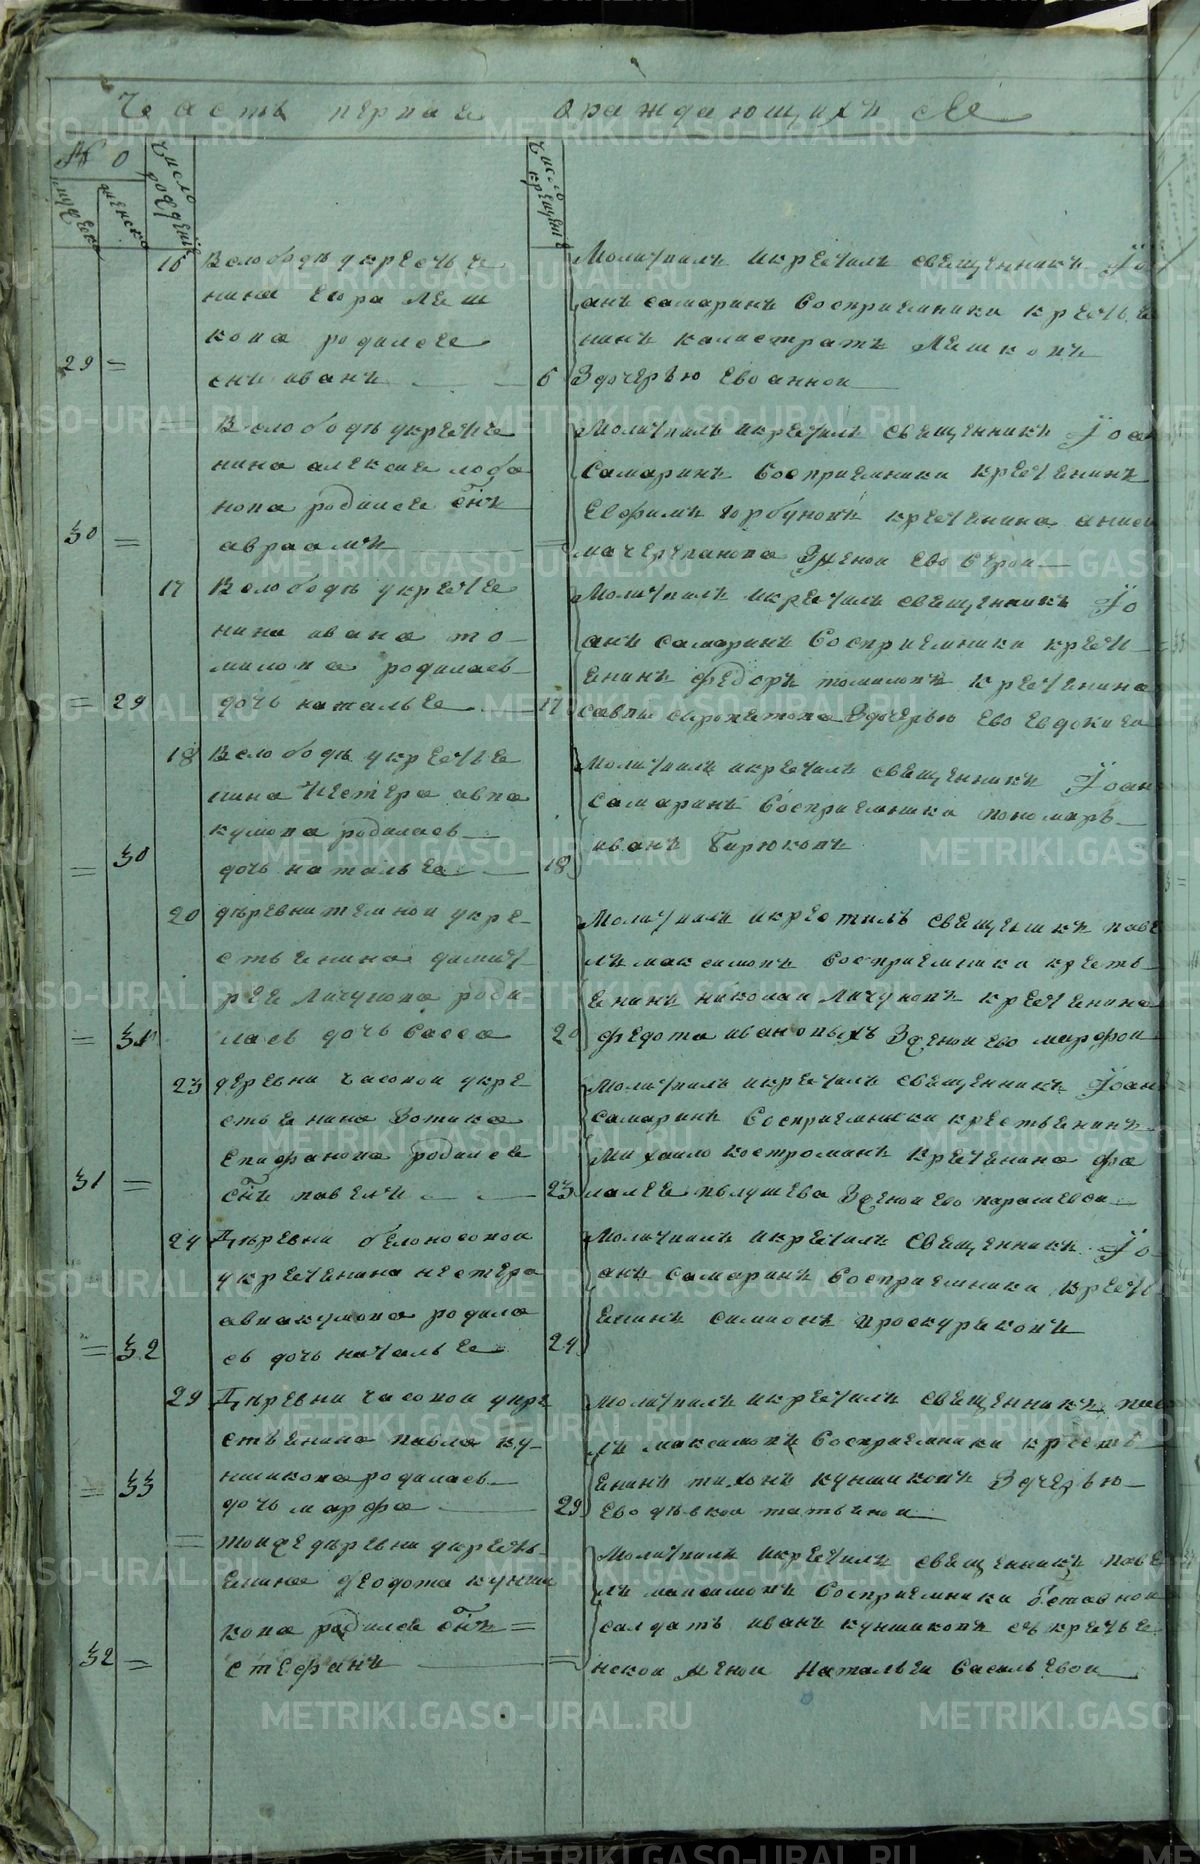 Часть первая ораждающихъ се
№ 0
мужеска
женска
число рождения
число крещения
16
В слободѣ у крестье
нина егора леш
кова родилсе
29 =
снъ иванъ
6
Молитвилъ икрестилъ священникъ Їо
анъ самаринъ восприемники крестье
нинъ калистратъ Лешковъ
Здочерью ево анной
=
В слободѣ у крестье
нина алексие лоба
нова родилсе снъ
30 =
авраамъ
=
Молитвилъ икрестилъ священникъ Їоан
самаринъ восприемники крестенинъ
Евфимъ горбуновъ крестенина аниси
ма черепанова Зженой ево верой
17
В слободѣ у крестье
нина ивана то
милова родилась
= 29
дочь наталье
17
Молитвилъ икрестилъ священникъ Їо
анъ самаринъ восприемники крест
енинъ федоръ томиловъ крестенина
саввы сыропетова Здочерью ево евдокиеи
18
В слободѣ у крестье
нина нестера авва
кумова родилась
= 30
дочь наталье
18
Молитвилъ икрестилъ священникъ Їоан
самаринъ восприемника пономаръ
иванъ бирюковъ
20
дѣревни темной укре
стьенина дмит
рее личунова роди
= 31
лась дочь васса
20
Молитвилъ икрестилъ священикъ паве
лъ максимовъ восприемника кресть
енинъ николаи личуновъ крестенина
федота ивановыхъ Зженой ево марфой
23
деревни часовой укре
стьенина Зотика
Епифанова родилсе
31 =
снъ павелъ
23
Молитвилъ икрестилъ священникъ Їоан
самаринъ восприемники крестьенинъ
Михаило костроминъ крестенина фа
лалее пелушева Зженой ево парасьевой
24
дѣревни белоносовой
укрестенина нестера
аввакумова родила
= 32
сь дочь наталье
24
Молитвилъ икрестилъ священникъ Їо
анъ самаринъ восприемники крест
енинъ симионъ проскуряковъ
29
дѣревни часовой укре
стьенина павла ку
ншикова родилась
= 33
дочь марфа
29
молитвилъ икрестилъ священникъ паве
лъ максимовъ восприемники кресть
енинъ тихонъ куншиковъ Здчерью
Ево дѣвкой татьяной
=
тойже дѣревни укресть
енина феодота кунши
кова родилсе снъ =
32 =
стефанъ
=
Молитвилъ икрестилъ священникъ паве
лъ максимовъ восприемники отставной
салдатъ иванъ куншиковъ съ крестье
нской женой Натальеи васильевой